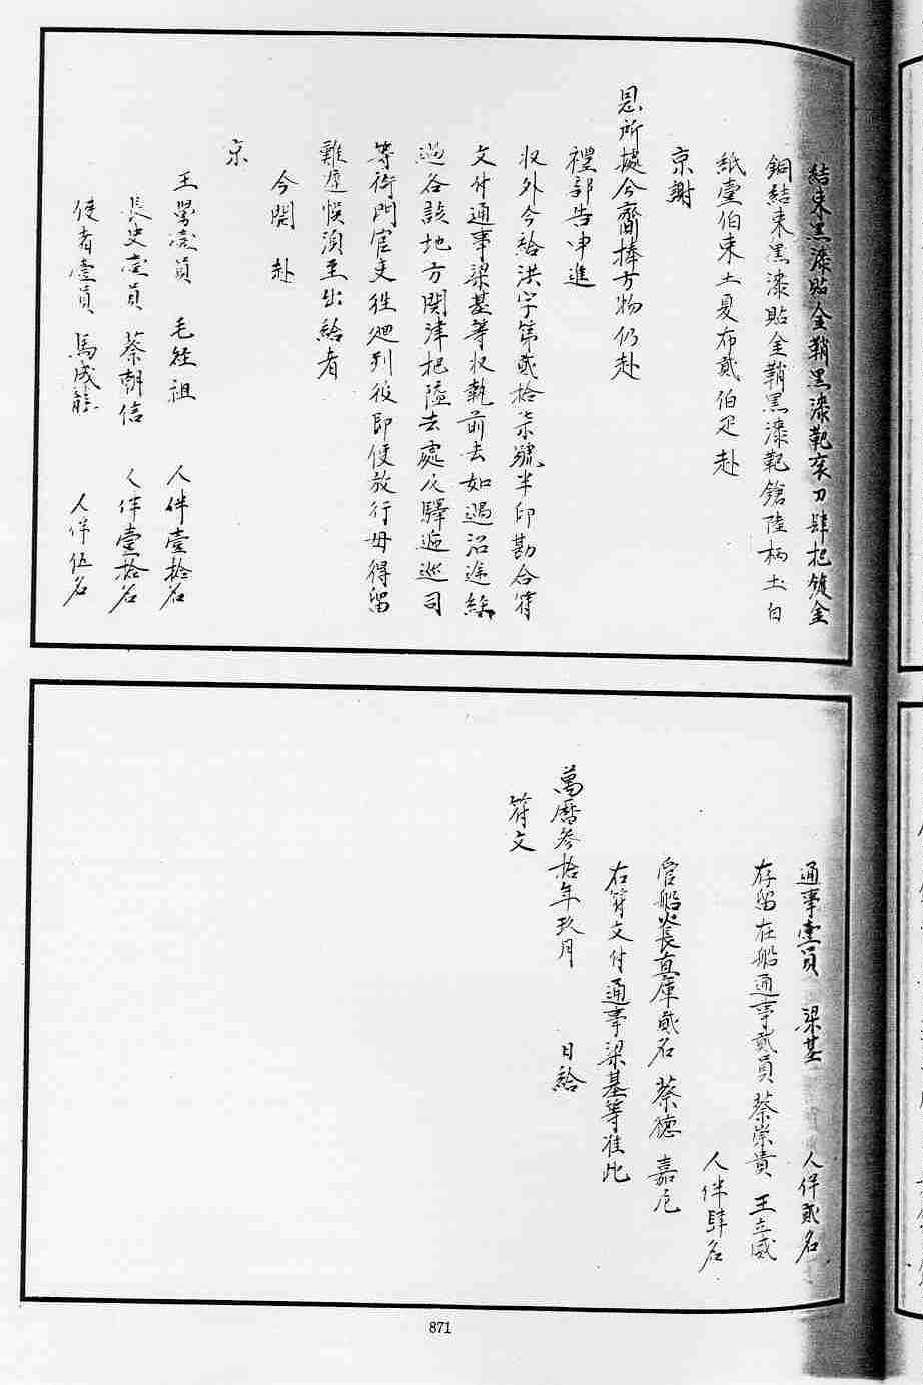 結束黒漆貼金鞘黒漆靶袞刀肆把鍍金
銅結束黒漆貼金鞘黒漆靶鎗陸柄土白
紙壹伯束土夏布貳伯疋赴
京謝
恩所據合齎捧方物仍赴
禮部告申進
収外今給洪字第貳拾柒號半印勘合符
文付通事梁基等収執前去如遇沿途経
過各該地方関津把隘去處及驛逓巡司
等衙門官吏徃廻列役即便放行毋得留
難遲悞湏至出給者
今開赴
京
王舅壹員 毛経祖 人伴壹拾名
長史壹員 蔡朝信 人伴壹拾名
使者壹員 馬成龍 人伴伍名
通事壹員 梁基 人伴貳名
存留在船通事貳員 蔡崇貴 王立威
人伴肆名
管船火長直庫貳名 蔡德 嘉尼
右符文付通事梁基等准此
萬曆叁拾年玖月 日給
符文
871